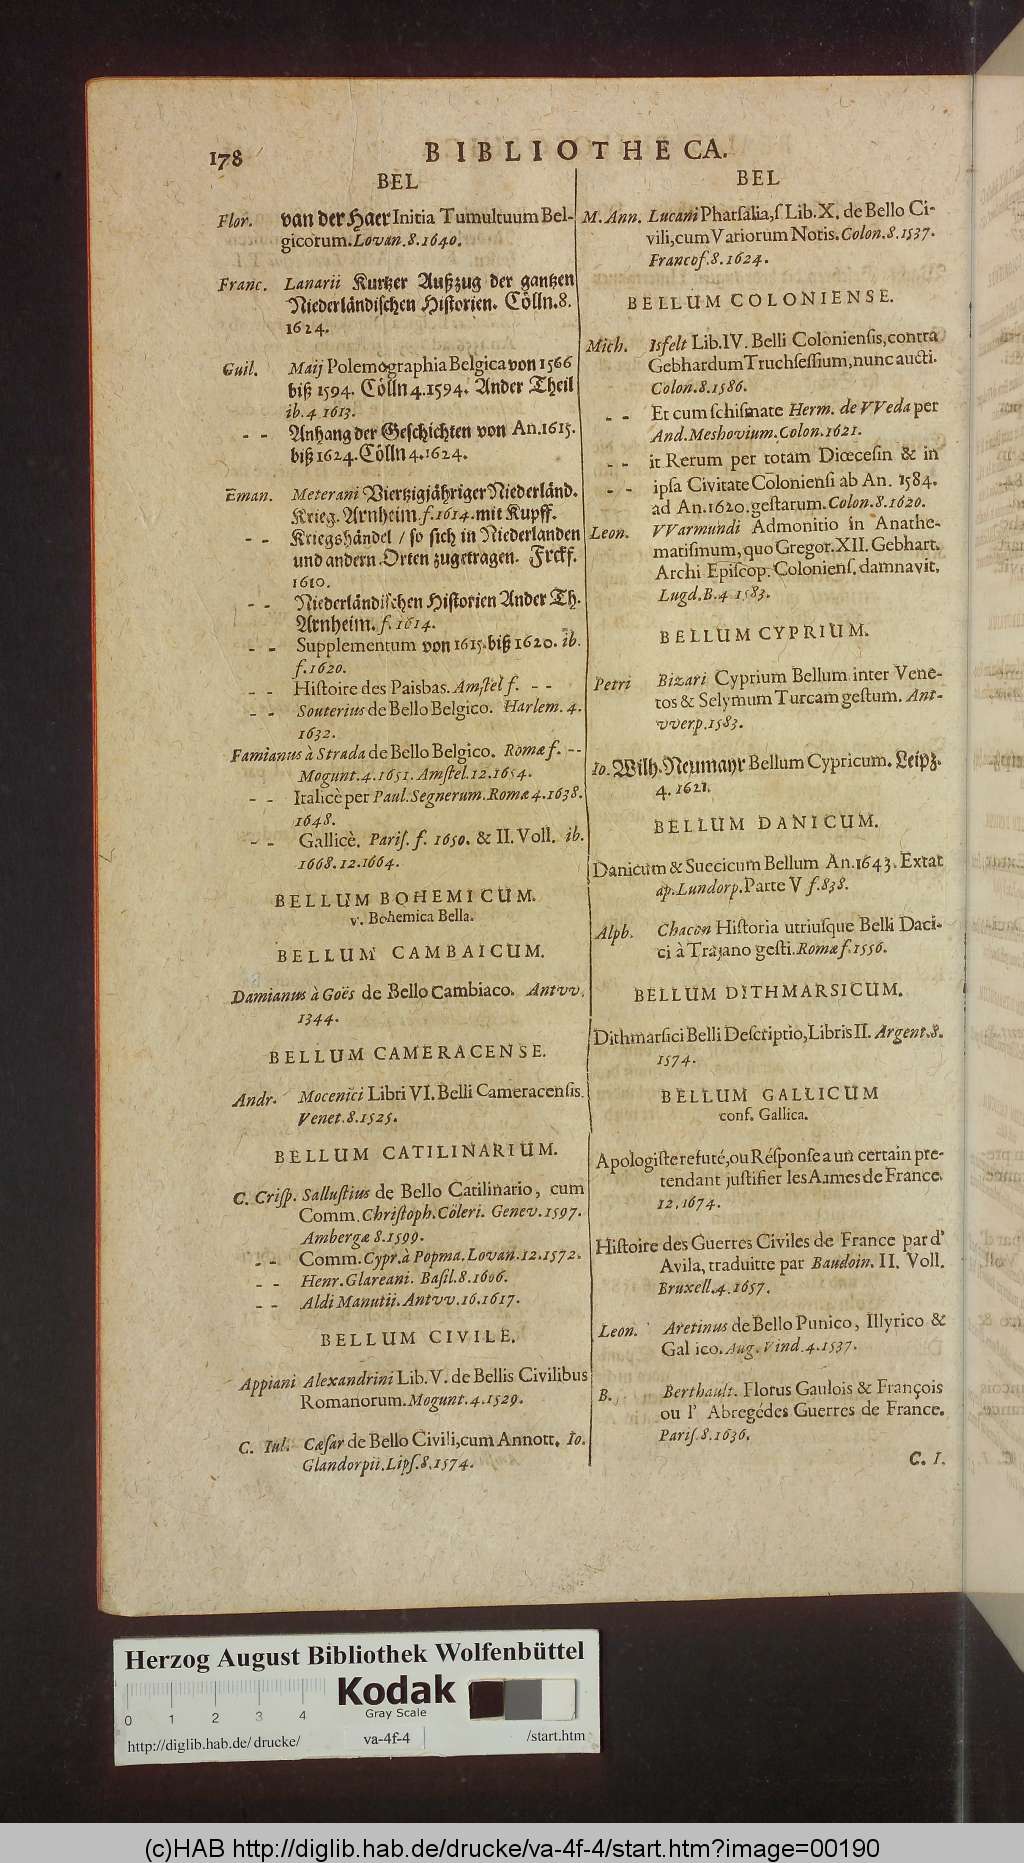 178
BIBLIOTHECA.
BEL
Flor. van der Haer Initia Tumultuum Bel-
gicorum. Lovan. 8. 1640.
Franc. Lanarii Kurtzer Außzug der gantzen
Niederländiſchen Hiſtorien. Cölln. 8.
1624.
Guil. Maij Polemographia Belgica von 1566
biß 1594. Cölln 4. 1594. Ander Theil
ib. 4. 1613.
- - Anhang der Geſchichten von An. 1615.
biß 1624. Cölln 4. 1624.
Eman. Meterani Viertzigjähriger Niederländ.
Krieg. Arnheim. f. 1614. mit Kupff.
- - Kriegshändel / ſo ſich in Niederlanden
und andern Orten zugetragen. Frckf.
1610.
- - Niederländiſchen Hiſtorien Ander Th.
Arnheim. f. 1614.
- - Supplementum von 1615. biß 1620. ib.
f. 1620.
- - Hiſtoire des Paisbas. Amſtel f. - -
- - Souterius de Bello Belgico. Harlem. 4.
1632.
Famianus à Strada de Bello Belgico. Romæ f. - -
Mogunt. 4. 1651. Amſtel. 12. 1654.
- - Italicè per Paul. Segnerum. Romæ 4. 1638.
1648.
- - Gallicè. Pariſ. f. 1650. & II. Voll. ib.
1668. 12. 1664.
BELLUM BOHEMICUM.
v. Bohemica Bella.
BELLUM CAMBAICUM.
Damianus à Goës de Bello Cambiaco. Antvv.
1344.
BELLUM CAMERACENSE.
Andr. Mocenici Libri VI. Belli Cameracenſis.
Venet. 8. 1525.
BELLUM CATILINARIUM.
C. Criſp. Salluſtius de Bello Catilinario, cum
Comm. Chriſtoph. Cöleri. Genev. 1597.
Ambergæ 8. 1599.
- - Comm. Cypr. à Popma. Lovan. 12. 1572.
- - Henr. Glareani. Baſil. 8. 1606.
- - Aldi Manutii. Antvv. 16. 1617.
BELLUM CIVILE.
Appiani Alexandrini Lib. V. de Bellis Civilibus
Romanorum. Mogunt. 4. 1529.
C. Iul. Cæſar de Bello Civili, cum Annott. Io.
Glandorpii. Lipſ. 8. 1574.
BEL
M. Ann. Lucani Pharſalia, ſ Lib. X. de Bello Ci-
vili, cum Variorum Notis. Colon. 8. 1537.
Francof. 8. 1624.
BELLUM COLONIENSE.
Mich. Isfelt Lib. IV. Belli Colonienſis, contra
Gebhardum Truchſeſſium, nunc aucti.
Colon. 8. 1586.
- - Et cum ſchiſmate Herm. de VVeda per
And. Meshovium. Colon. 1621.
- - it Rerum per totam Diœceſin & in
- - ipſa Civitate Colonienſi ab An. 1584.
ad An. 1620. geſtarum. Colon. 8. 1620.
Leon. VVarmundi Admonitio in Anathe-
matiſmum, quo Gregor. XII. Gebhart.
Archi Epiſcop. Colonienſ. damnavit.
Lugd. B. 4 1583.
BELLUM CYPRIUM.
Petri Bizari Cyprium Bellum inter Vene-
tos & Selymum Turcam geſtum. Ant-
vverp. 1583.
Io. Wilh. Neumayr Bellum Cypricum. Leipz.
4. 1621.
BELLUM DANICUM.
Danicum & Suecicum Bellum An. 1643. Extat
ap. Lundorp. Parte V f. 838.
Alph. Chacon Hiſtoria utriuſque Belli Daci-
ci à Trajano geſti. Romæ f. 1556.
BELLUM DITHMARSICUM.
Dithmarſici Belli Deſcriptio, Libris II. Argent. 8.
1574.
BELLUM GALLICUM
conf. Gallica.
Apologiſte refuté, ou Réſponſe a un certain pre-
tendant juſtifier les Armes de France.
12. 1674.
Hiſtoire des Guerres Civiles de France par d'
Avila, traduitte par Baudoin. II. Voll.
Bruxell. 4. 1657.
Leon. Aretinus de Bello Punico, Illyrico &
Gal ico. Aug. Vind. 4. 1537.
B. Berthault. Florus Gaulois & François
ou l' Abregédes Guerres de France.
Pariſ. 8. 1636.
C. I.
Herzog August Bibliothek Wolfenbüttel
Kodak
Gray Scale
0 1 2 3 4
http://diglib.hab.de/drucke/ va-4f-4 /start.htm
(c)HAB http://diglib.hab.de/drucke/va-4f-4/start.htm?image=00190